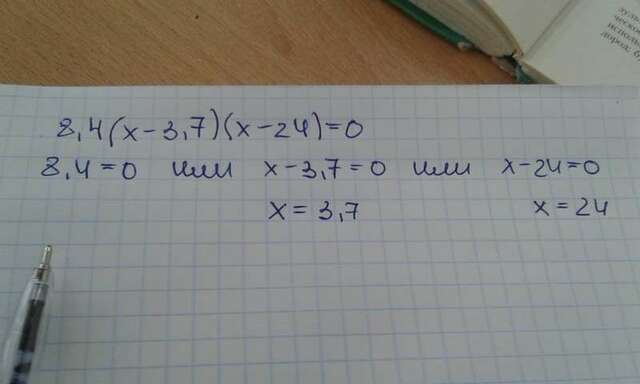 зуль
ческое
исполь
дород, б
8,4(x-3,7)(x-24)=0
8,4=0 или x-3,7=0 или x-24=0
x=3,7 x=24